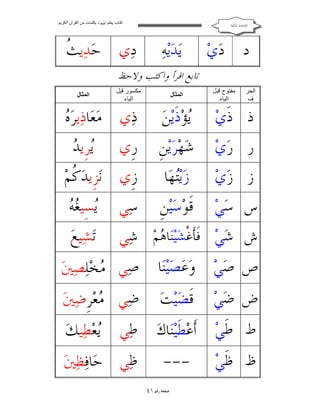 كتاب يعلم تهيوت بكلمات من القرآن الكريم
د دَيْ يَدَيْهِ دِي حَدِيثُ
تابع اقرأ واكتب ولاحظ
الحرف مفتوح قبل الياء المثال مكسور قبل الياء المثال
ذ ذَيْ يُؤْذَيْنَ ذِي مَعَاذِيرَهُ
ر رَيْ شَهْرَيْنِ رِي يُرِيدُ
ز زَيْ زَيْتُهَا زِي نَزِيدَكُمْ
س سَيْ قَوْسَيْنِ سِي يُسِيغُهُ
ش شَيْ فَأَغْشَيْنَاهُمْ شِي تَشِيعَ
ص صَيْ وَعَصَيْنَا صِي مُخْلِصِينَ
ض ضَيْ قَضَيْتَ ضِي مُعْرِضِينَ
ط طَيْ أَعْطَيْنَاكَ طِي يُعْطِيكَ
ظ ظَيْ --- ظِي حَافِظِينَ
صفحة رقم ٤١